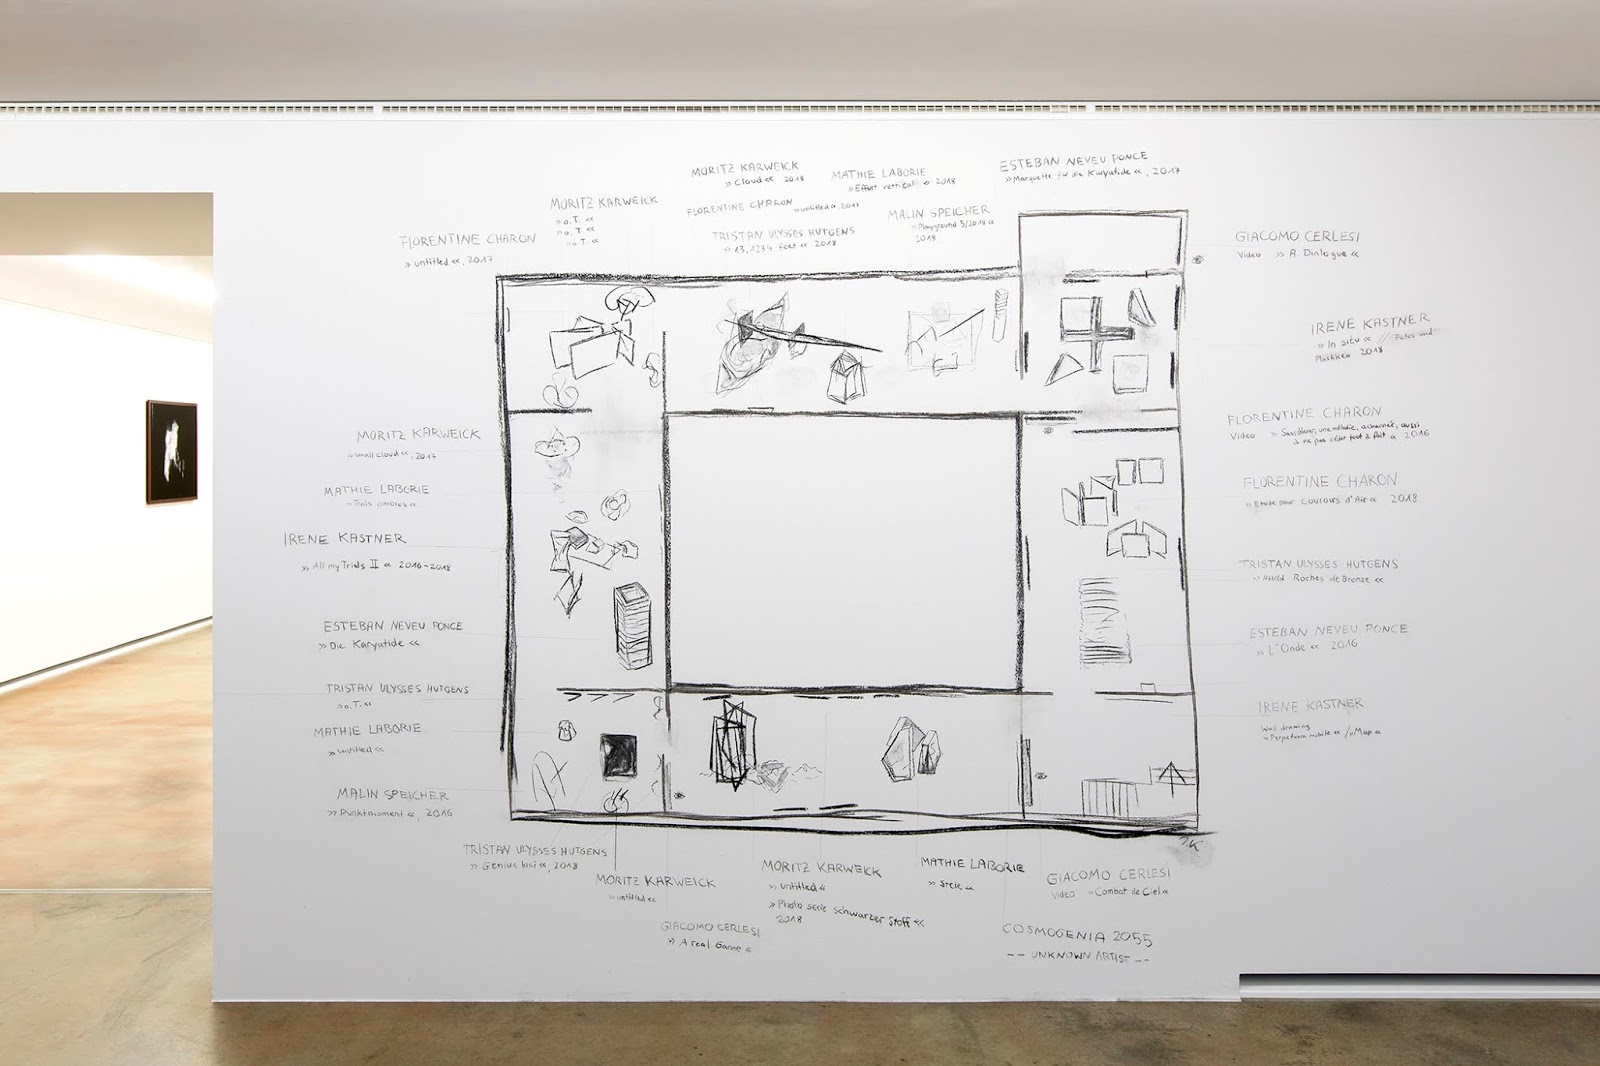 MORITZ KARWEICK
»Cloud« 2018
MATHIE LABORIE
»Effort vertical« 2018
ESTEBAN NEVEU PONCE
»Marquette für die Karyatide«, 2017
MORITZ KARWEICK
»o.T. «
»o.T «
»o.T. «
FLORENTINE CHARON »untitled«, 2017
MALIN SPEICHER
»Playground 5/2018«
2018
FLORENTINE CHARON
»untitled«, 2017
TRISTAN ULYSSES HUTGENS
»13,1234 Feet« 2018
GIACOMO CERLESI
Video »A Dialogue«
IRENE KASTNER
»In situ« // Fotos und
2018
FLORENTINE CHARON
Video
à ne pas céder tout à fait« 2016
MORITZ KARWEICK
»small cloud«, 2017
MATHIE LABORIE
»Trois ombres«
FLORENTINE CHARON
»Etude pour coulours d'Air« 2018
IRENE KASTNER
»All my Trials II« 2016-2018
TRISTAN ULYSSES HUTGENS
Roches de Bronze«
ESTEBAN NEVEU PONCE
»Die Karyatide«
ESTEBAN NEVEU PONCE
»L'Onde« 2016
TRISTAN ULYSSES HUTGENS
»o.T.«
MATHIE LABORIE
»untitled«
IRENE KASTNER
Wall drawing
»Perpetuum mobile«
MALIN SPEICHER
»Punktmoment«, 2016
J.K
TRISTAN ULYSSES HUTGENS
»Genius loci«, 2018
MORITZ KARWEICK
»untitled«
MORITZ KARWEICK
»untitled«
»Photo serie schwarzer Stoff«
2018
MATHIE LABORIE
»Stele«
GIACOMO CERLESI
Video »Combat de Ciel«
GIACOMO CERLESI
»A real Game«
COSMOGENIA 2055
-- UNKNOWN ARTIST --